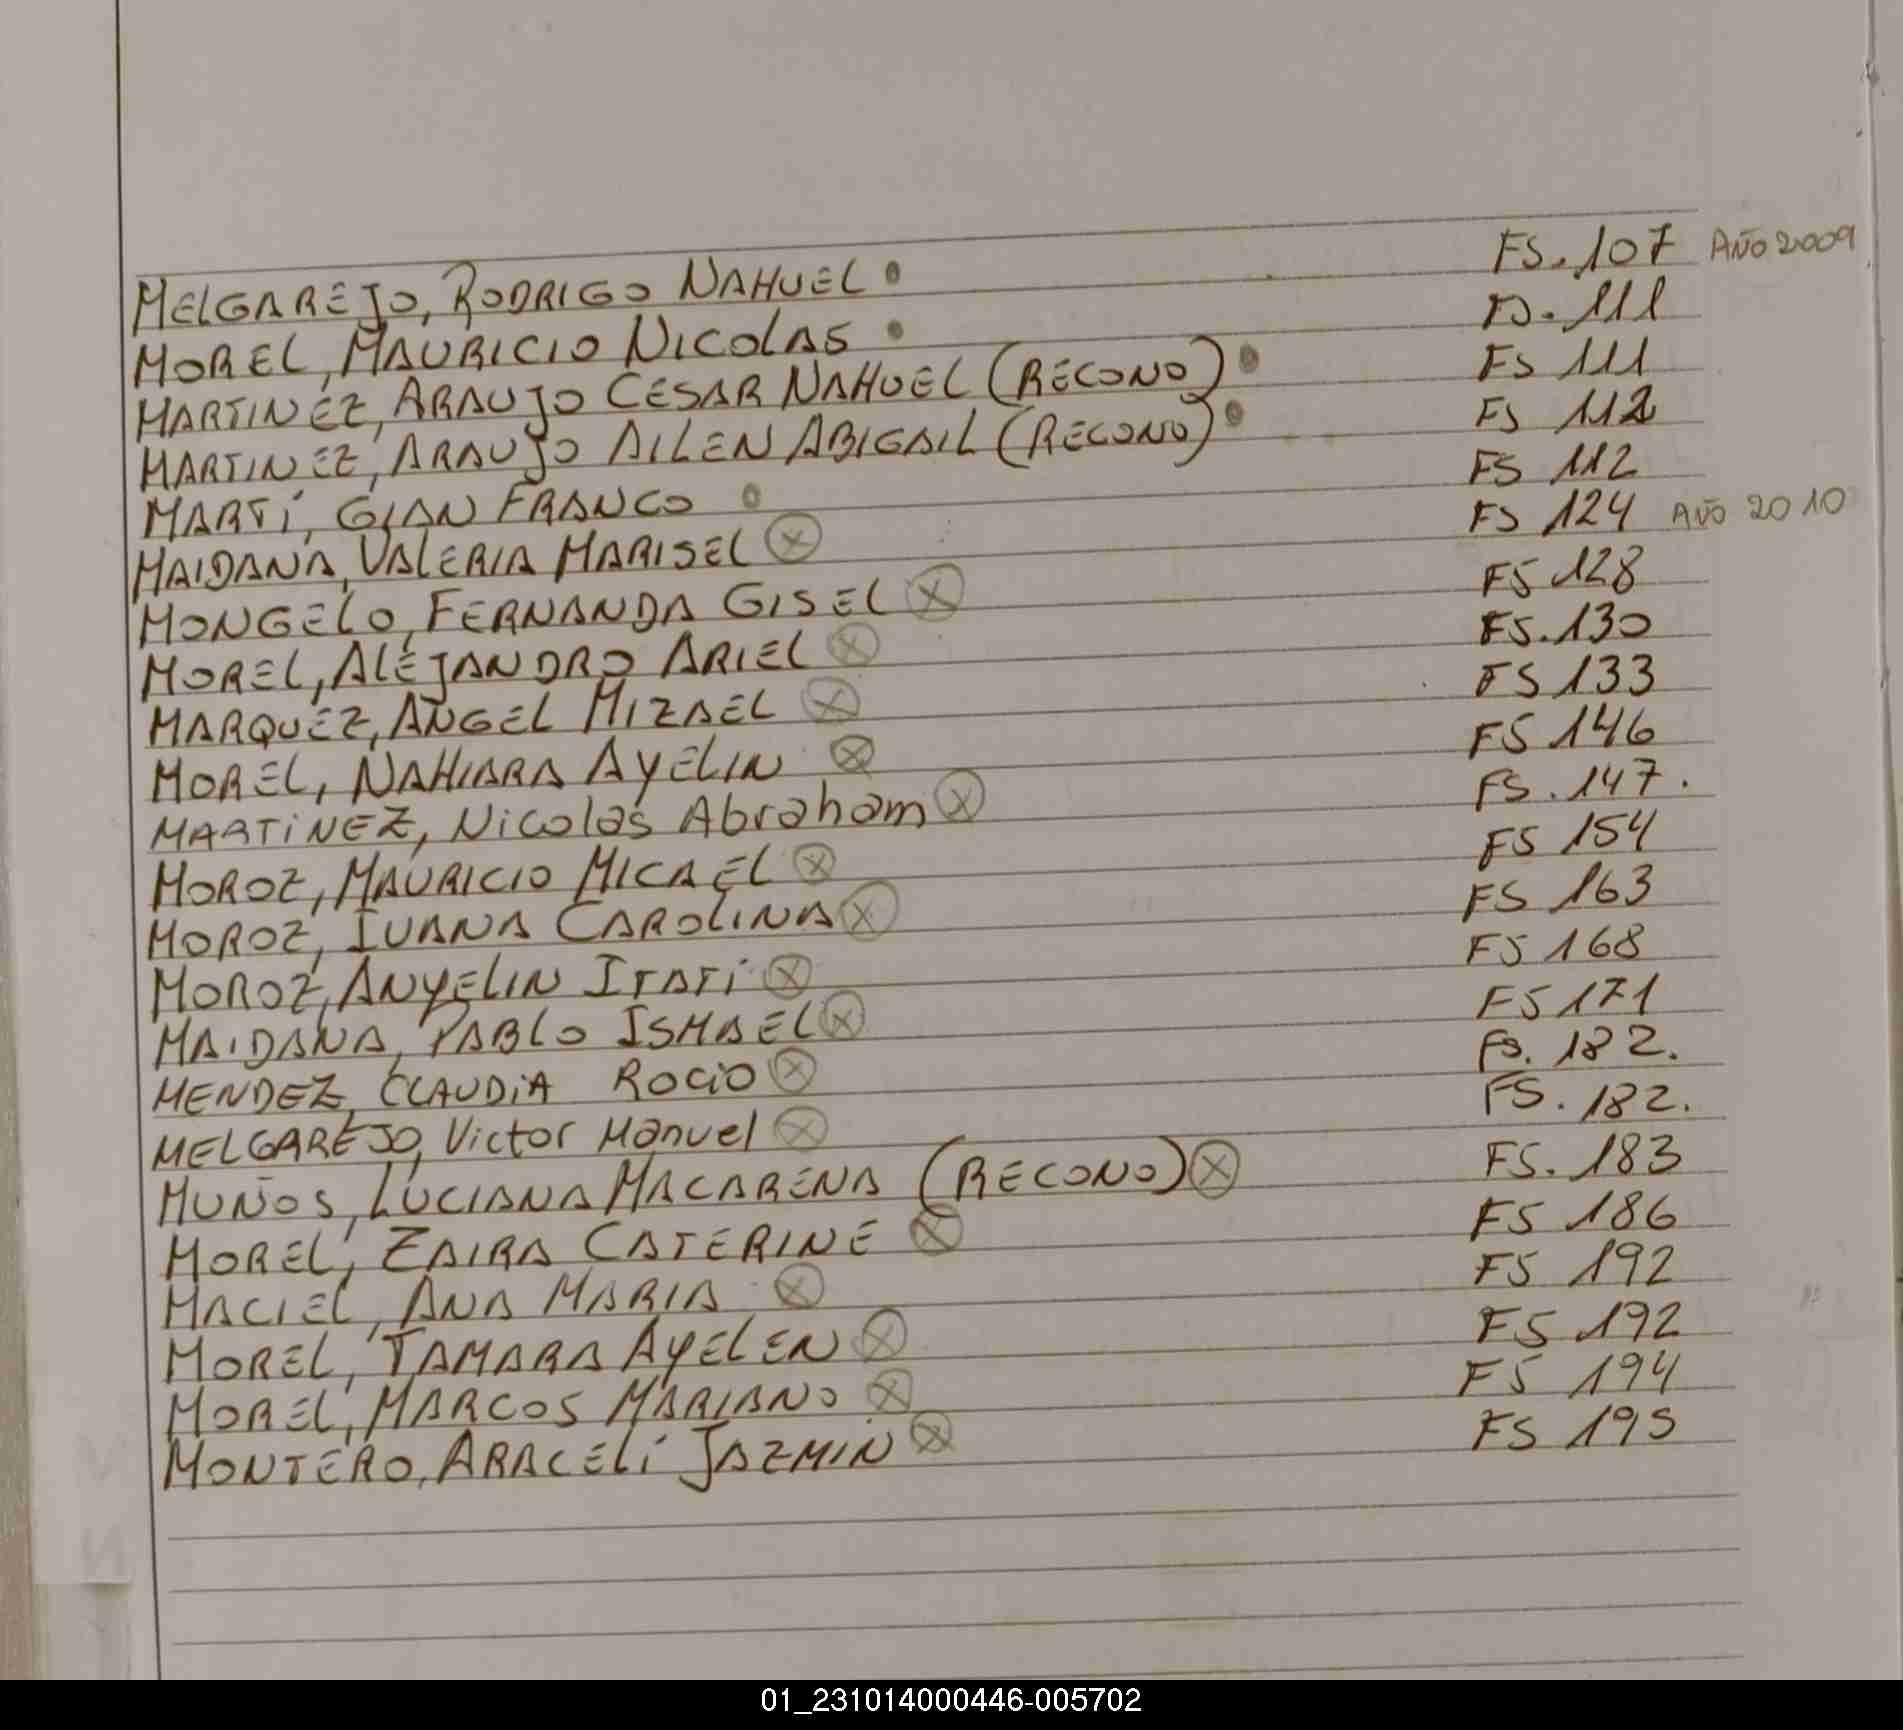 MELGAREJO, RODRIGO NAHUEL • FS. 107 AÑO 2009
MOREL, MAURICIO NICOLAS • FS. 111
MARTINEZ, ARAUJO CESAR NAHUEL (RECONO) • FS 111
MARTINEZ, ARAUJO AILEN ABIGAIL (RECONO) • FS 112
MARTÍ, GIAN FRANCO • FS 112
MAIDANA, VALERIA MARISEL ⓧ FS 124 AÑO 2010
MONGELO, FERNANDA GISEL ⓧ FS 128
MOREL, ALEJANDRO ARIEL ⓧ FS. 130
MARQUEZ, ANGEL MIZAEL ⓧ FS 133
MOREL, NAHIARA AYELIN ⓧ FS 146
MARTiNEZ, Nicolás Abraham ⓧ FS. 147.
MOROZ, MAURICIO MICAEL ⓧ FS 154
MOROZ, IVANA CAROLINA ⓧ FS 163
MOROZ, ANYELIN ITATÍ ⓧ FS 168
MAIDANA, PABLO ISMAEL ⓧ FS 171
MENDEZ, CLAUDiA ROCiO ⓧ FS. 182.
MELGAREJO, Victor Manuel ⓧ FS. 182.
MUÑOS, LUCIANA MACARENA (RECONO) ⓧ FS. 183
MOREL, ZAIRA CATERINE ⓧ FS 186
MACIEL, ANA MARIA ⓧ FS 192
MOREL, TAMARA AYELEN ⓧ FS 192
MOREL, MARCOS MARIANO ⓧ FS 194
MONTERO, ARACELÍ JAZMIN ⓧ FS 195
01_231014000446-005702